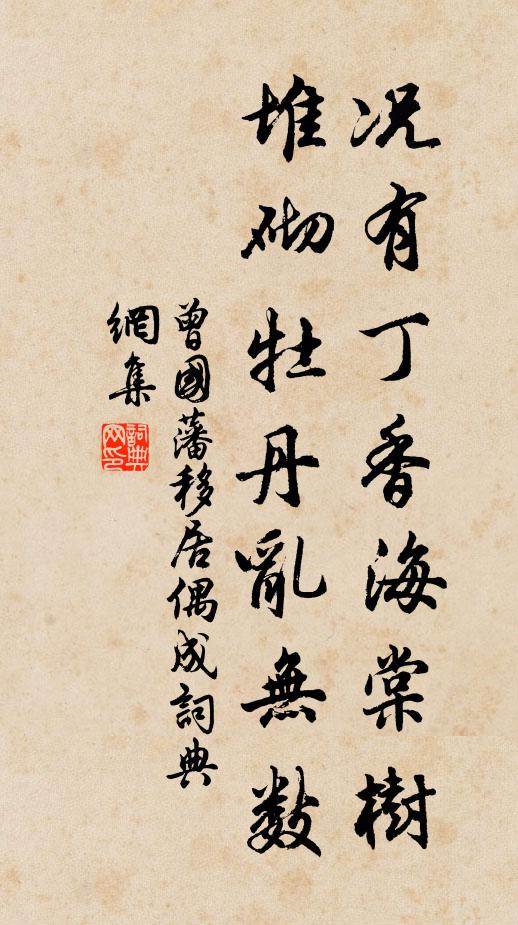 况有丁香海棠樹
堆砌牡丹亂無數
曾國藩移居偶成詞典
網集
詞典
网印